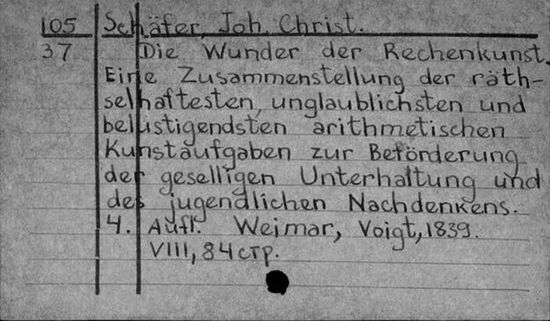 105 Schäfer, Joh. Christ.
37 Die Wunder der Rechenkunst.
Eine Zusammenstellung der räth-
selhaftesten, unglaublichsten und
belustigendsten arithmetischen
Kunstaufgaben zur Beförderung
der geselligen Unterhaltung und
des jugendlichen Nachdenkens.
4. Aufl. Weimar, Voigt, 1839.
VIII, 84 стр.